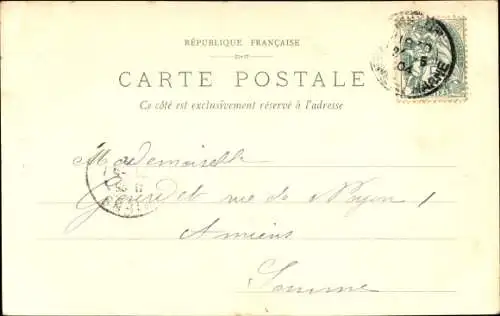 RÉPUBLIQUE FRANÇAISE
CARTE POSTALE
Ce côté est exclusivement réservé à l'adresse
MARNE
Mademoiselle
rue de Noyon 1
Amiens
Somme